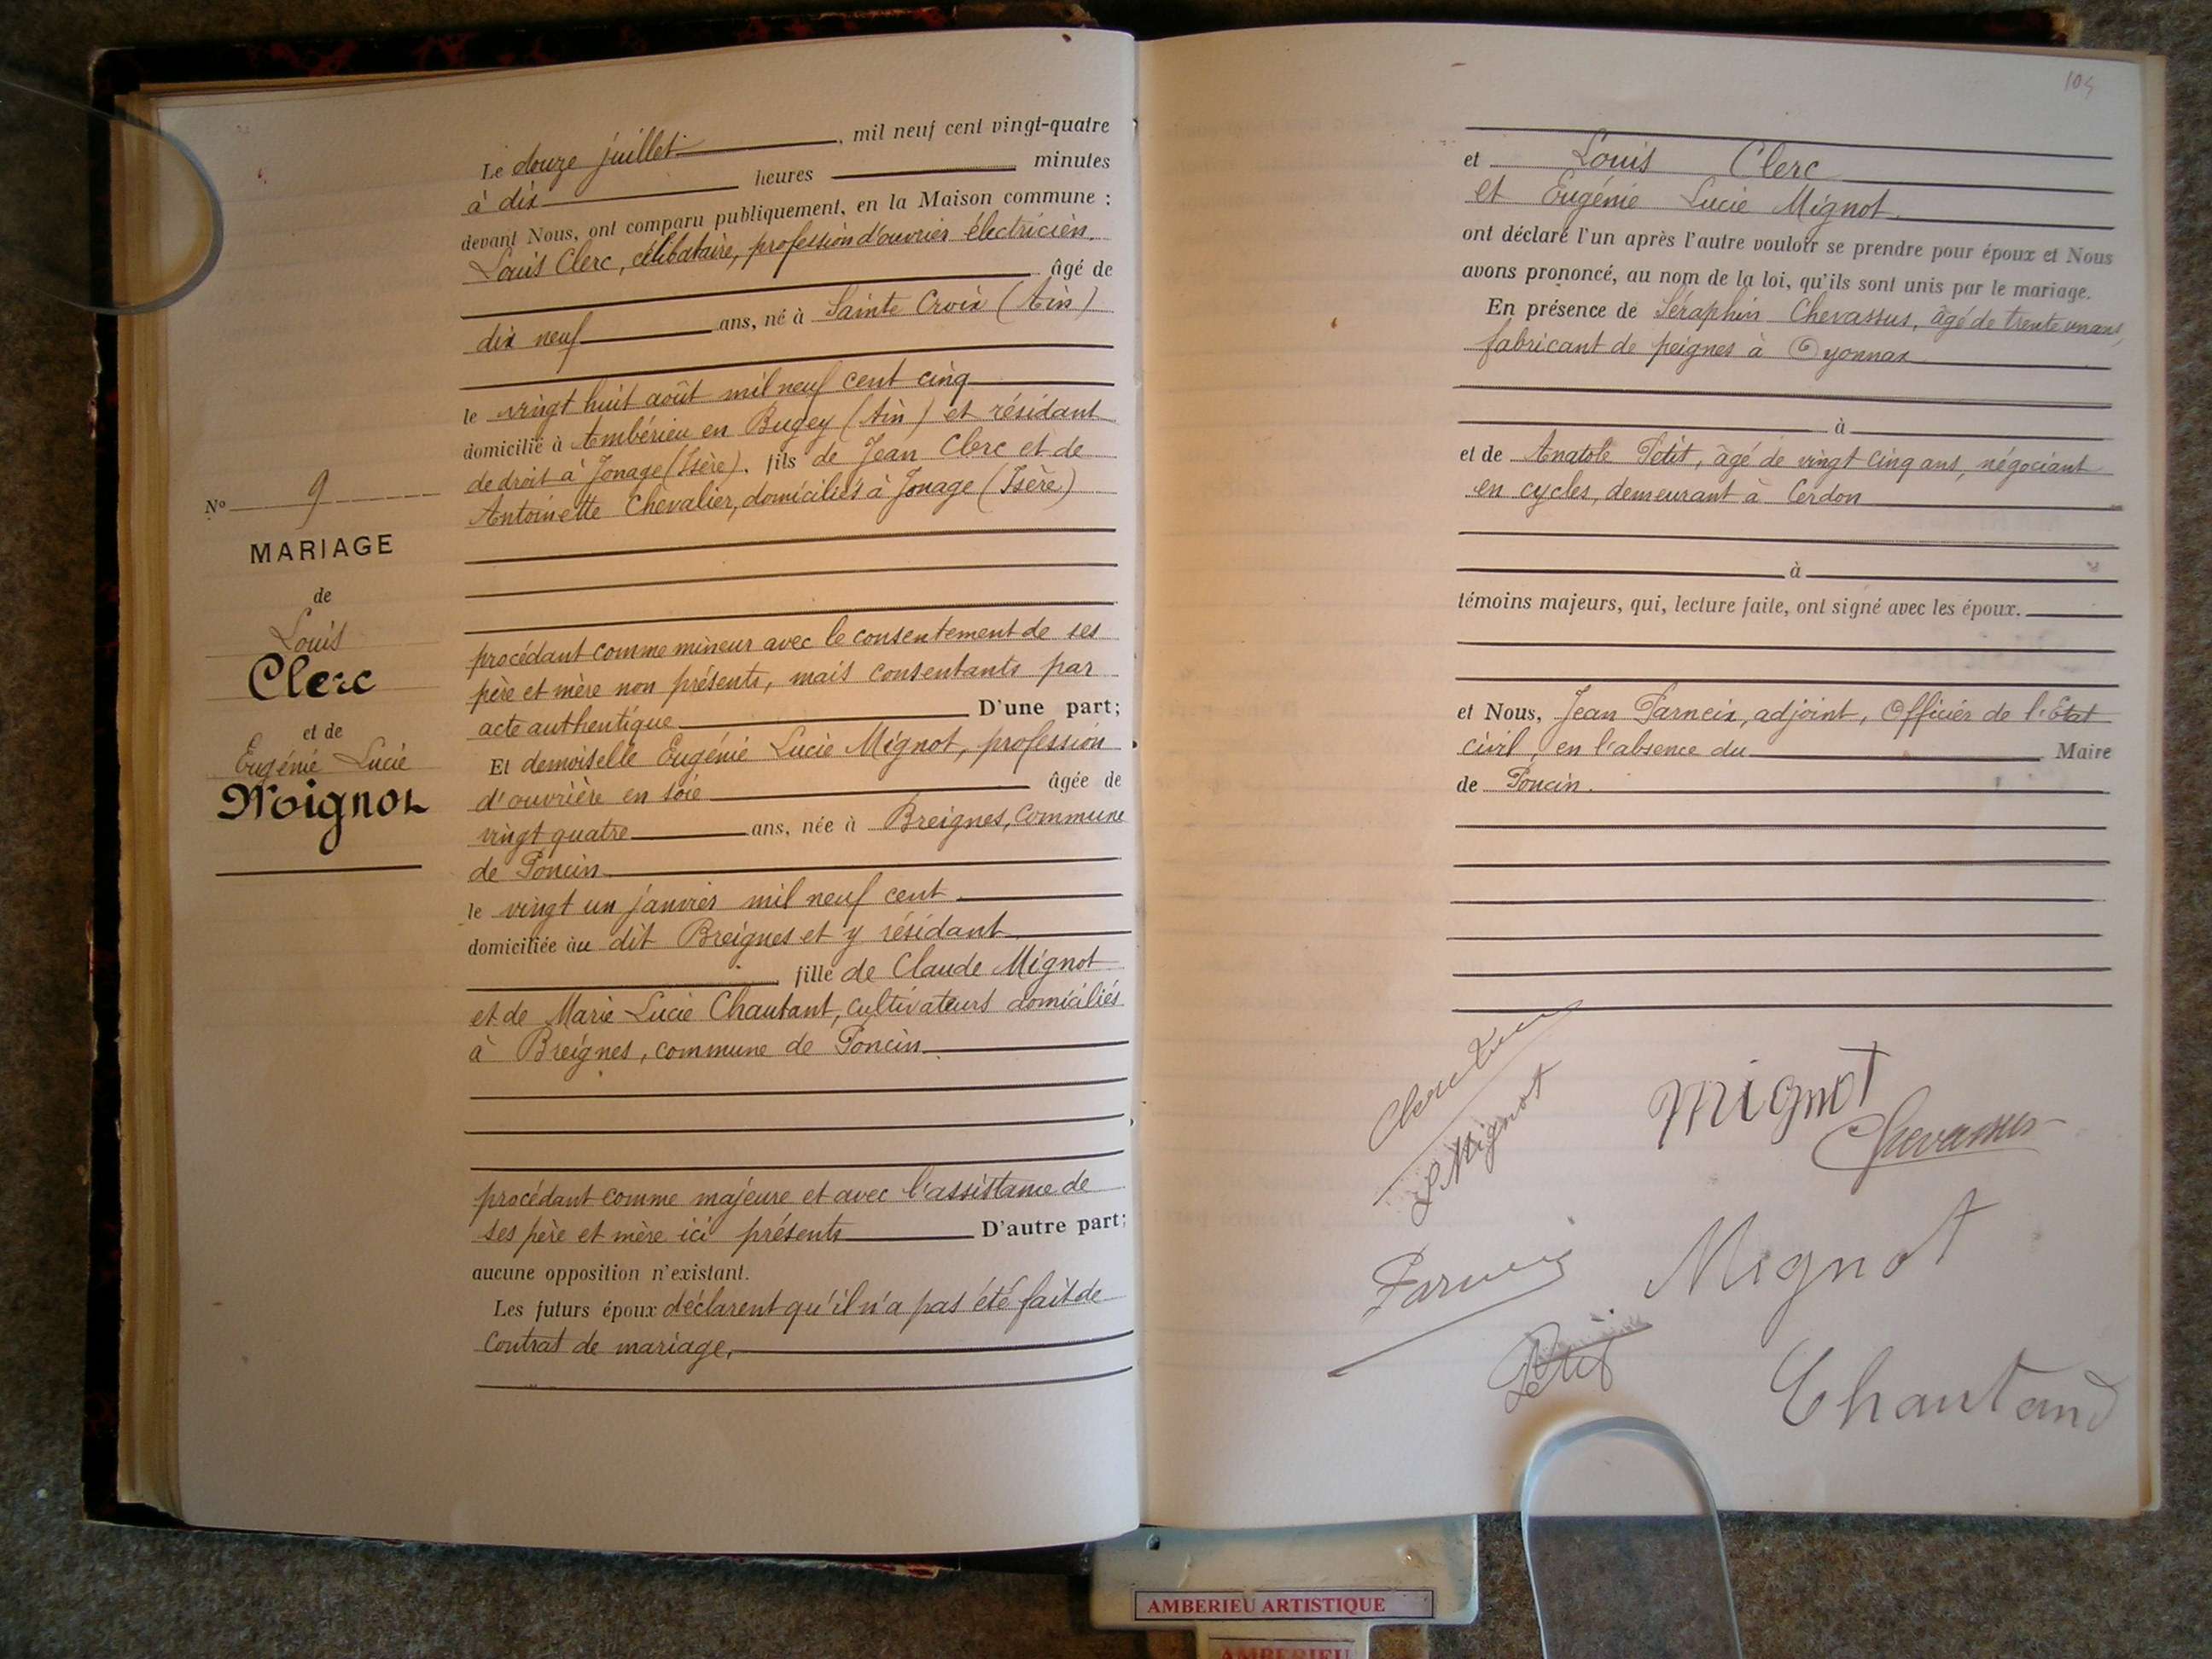 Le douze juillet, mil neuf cent vingt-quatre
à dix heures minutes
devant Nous, ont comparu publiquement, en la Maison commune :
Louis Clerc, célibataire, profession d'ouvrier électricien.
âgé de
dix neuf ans, né à Sainte Croix (Ain)
le vingt huit août mil neuf cent cinq
domicilié à Ambérieu en Bugey (Ain) et résidant
de droit à Jonage (Isère). fils de Jean Clerc et de
Antoinette Chevalier, domiciliés à Jonage (Isère)
No 9
MARIAGE
de
Louis
Clerc
et de
Eugénie Lucie
Mignot
procédant comme mineur avec le consentement de ses
père et mère non présents, mais consentants par
acte authentique D'une part;
Et demoiselle Eugénie Lucie Mignot, profession
d'ouvrière en soie âgée de
vingt quatre ans, née à Breignes, commune
de Poncin
le vingt un janvier mil neuf cent
domiciliée au dit Breignes et y résidant
fille de Claude Mignot
et de Marie Lucie Chautant, cultivateurs domiciliés
à Breignes, commune de Poncin
procédant comme majeure et avec l'assistance de
ses père et mère ici présents D'autre part;
aucune opposition n'existant.
Les futurs époux déclarent qu'il n'a pas été fait de
contrat de mariage.
104
et Louis Clerc
et Eugénie Lucie Mignot
ont déclaré l'un après l'autre vouloir se prendre pour époux et Nous
avons prononcé, au nom de la loi, qu'ils sont unis par le mariage.
En présence de Séraphin Chevassus, âgé de trente un ans,
fabricant de peignes à Oyonnax
à
et de Anatole Petit, âgé de vingt cinq ans, négociant
en cycles, demeurant à Cerdon
à
témoins majeurs, qui, lecture faite, ont signé avec les époux.
et Nous, Jean Parneix, adjoint, Officier de l'Etat
civil, en l'absence du Maire
de Poncin.
Clerc
L Mignot
Mignot
Chevassus
Parneix
Mignot
Petit
Chautand
AMBERIEU ARTISTIQUE
AMBERIEU